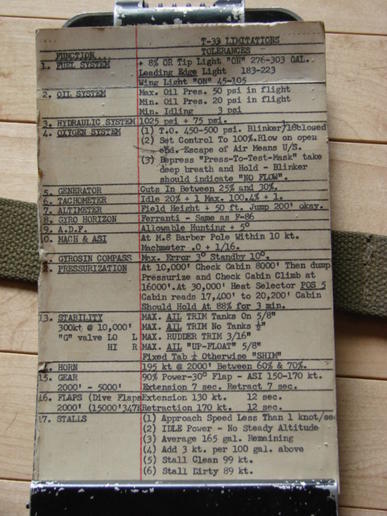 T-39 LIMITATIONS
FUNCTION... TOLERANCES
1. FUEL SYSTEM + 8% OR Tip Light "ON" 276-303 GAL.
Leading Edge Light 183-223
Wing Light "ON" 45-105
2. OIL SYSTEM Max. Oil Pres. 50 psi in flight
Min. Oil Pres. 20 psi in flight
Min. Idling 3 psi
3. HYDRAULIC SYSTEM 1025 psi + 75 psi.
4. OXYGEN SYSTEM (1) T.O. 450-500 psi. Blinker/
(2) Set Control To 100%.Blow on open
end. Escape of Air Means U/S.
(3) Depress "Press-To-Test-Mask" take
deep breath and Hold - Blinker
should indicate "NO FLOW".
5. GENERATOR Cuts In Between 25% and 30%.
6. TACHOMETER Idle 20% + 1 Max. 100.4% + 1.
7. ALTIMETER Field Height + 50 ft. Jump 200' okay.
8. GYRO HORIZON Ferranti - Same as F-86
9. A.D.F. Allowable Hunting + 5°
10. MACH & ASI At M.8 Barber Pole Within 10 kt.
Machmeter .0 + 1/16.
GYROSIN COMPASS Max. Error 3° Standby 10°.
PRESSURIZATION At 10,000' Check Cabin 8000' Then dump
Pressurize and Check Cabin Climb at
16000'.At 30,000' Heat Selector POS 5
Cabin reads 17,400' to 20,200' Cabin
Should Hold At 88% for 3 min.
13. STABILITY MAX. AIL TRIM Tanks On 5/8"
300kt @ 10,000' MAX. AIL TRIM No Tanks ½"
"G" valve LO L MAX. RUDDER TRIM 3/16"
HI R MAX. AIL "UP-FLOAT" 5/8"
Fixed Tab ½ Otherwise "SHIM"
14. HORN 195 kt @ 2000' Between 60% & 70%.
15. GEAR 90% Power-30° Flap - ASI 150-170 kt.
2000' - 5000' Extension 7 sec. Retract 7 sec.
16. FLAPS (Dive Flaps Extension 130 kt. 12 sec.
2000' (15000' Retraction 170 kt. 12 sec.
17. STALLS (1) Approach Speed Less Than 1 knot/sec
(2) IDLE Power - No Steady Altitude
(3) Average 165 gal. Remaining
(4) Add 3 kt. per 100 gal. above
(5) Stall Clean 99 kt.
(6) Stall Dirty 89 kt.